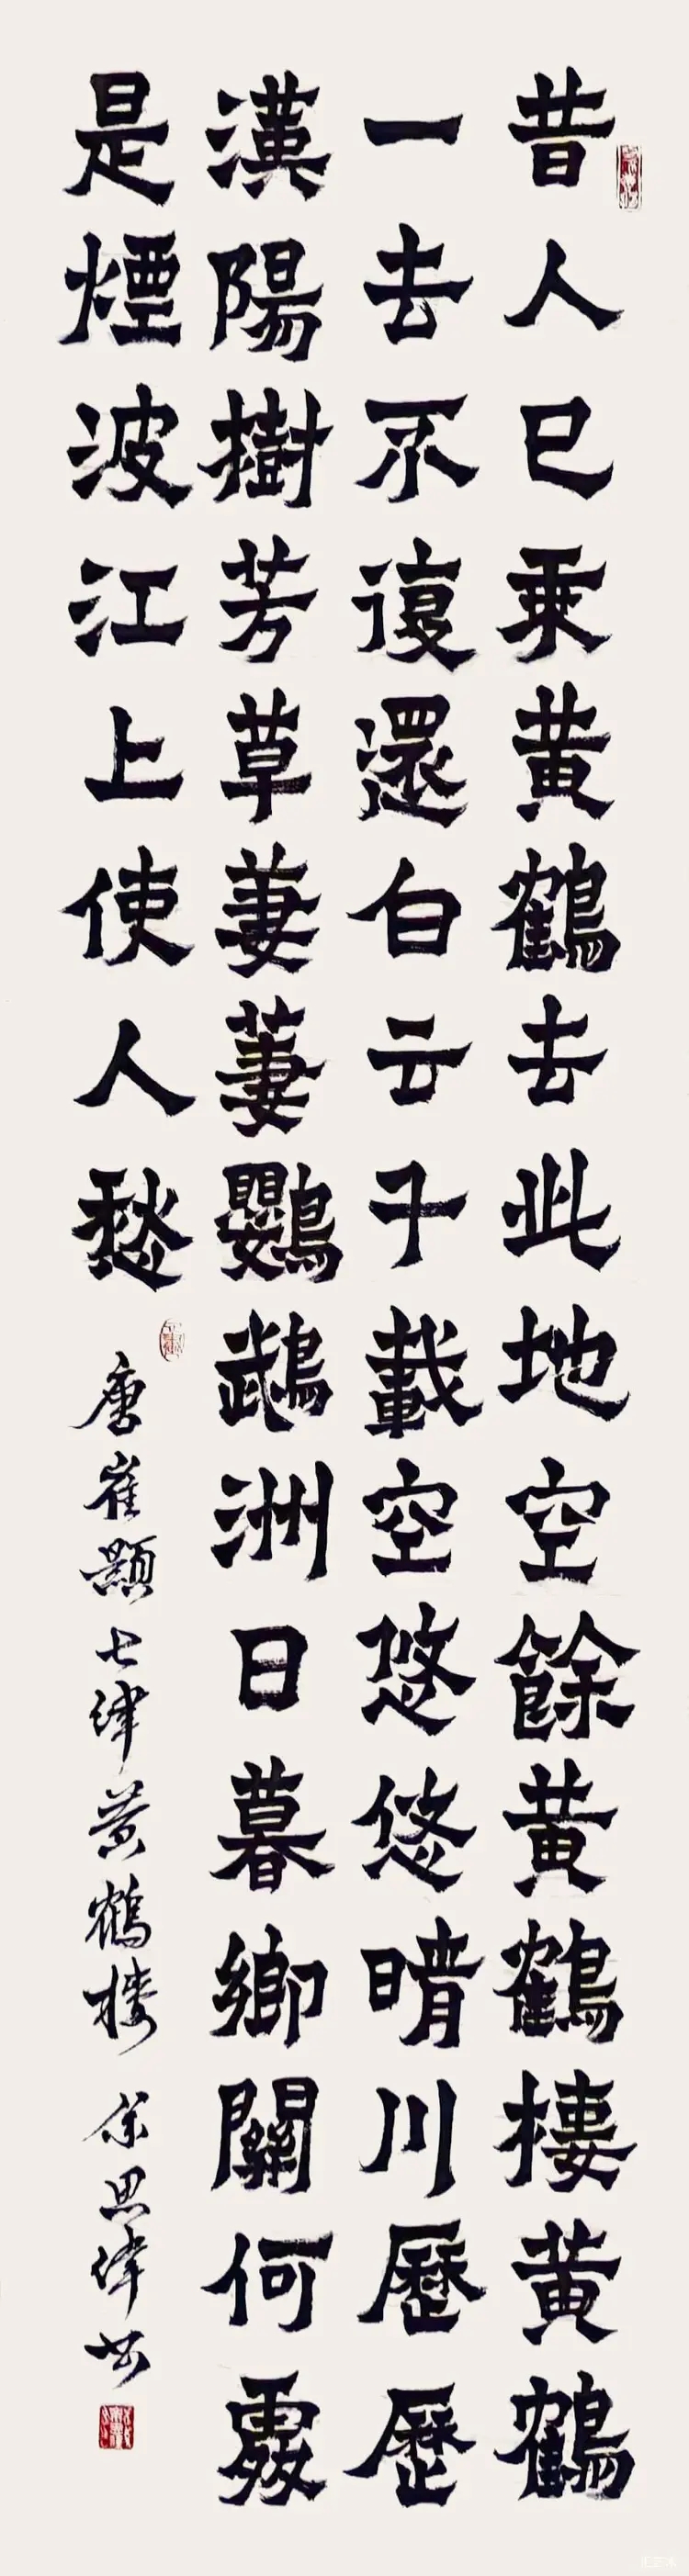 昔人已乘黄鶴去此地空餘黄鶴樓黄鶴
一去不復還白云千載空悠悠晴川歷歷
漢陽樹芳草萋萋鸚鵡洲日暮鄉關何處
是煙波江上使人愁
唐崔顥七律黄鶴楼 余思偉书